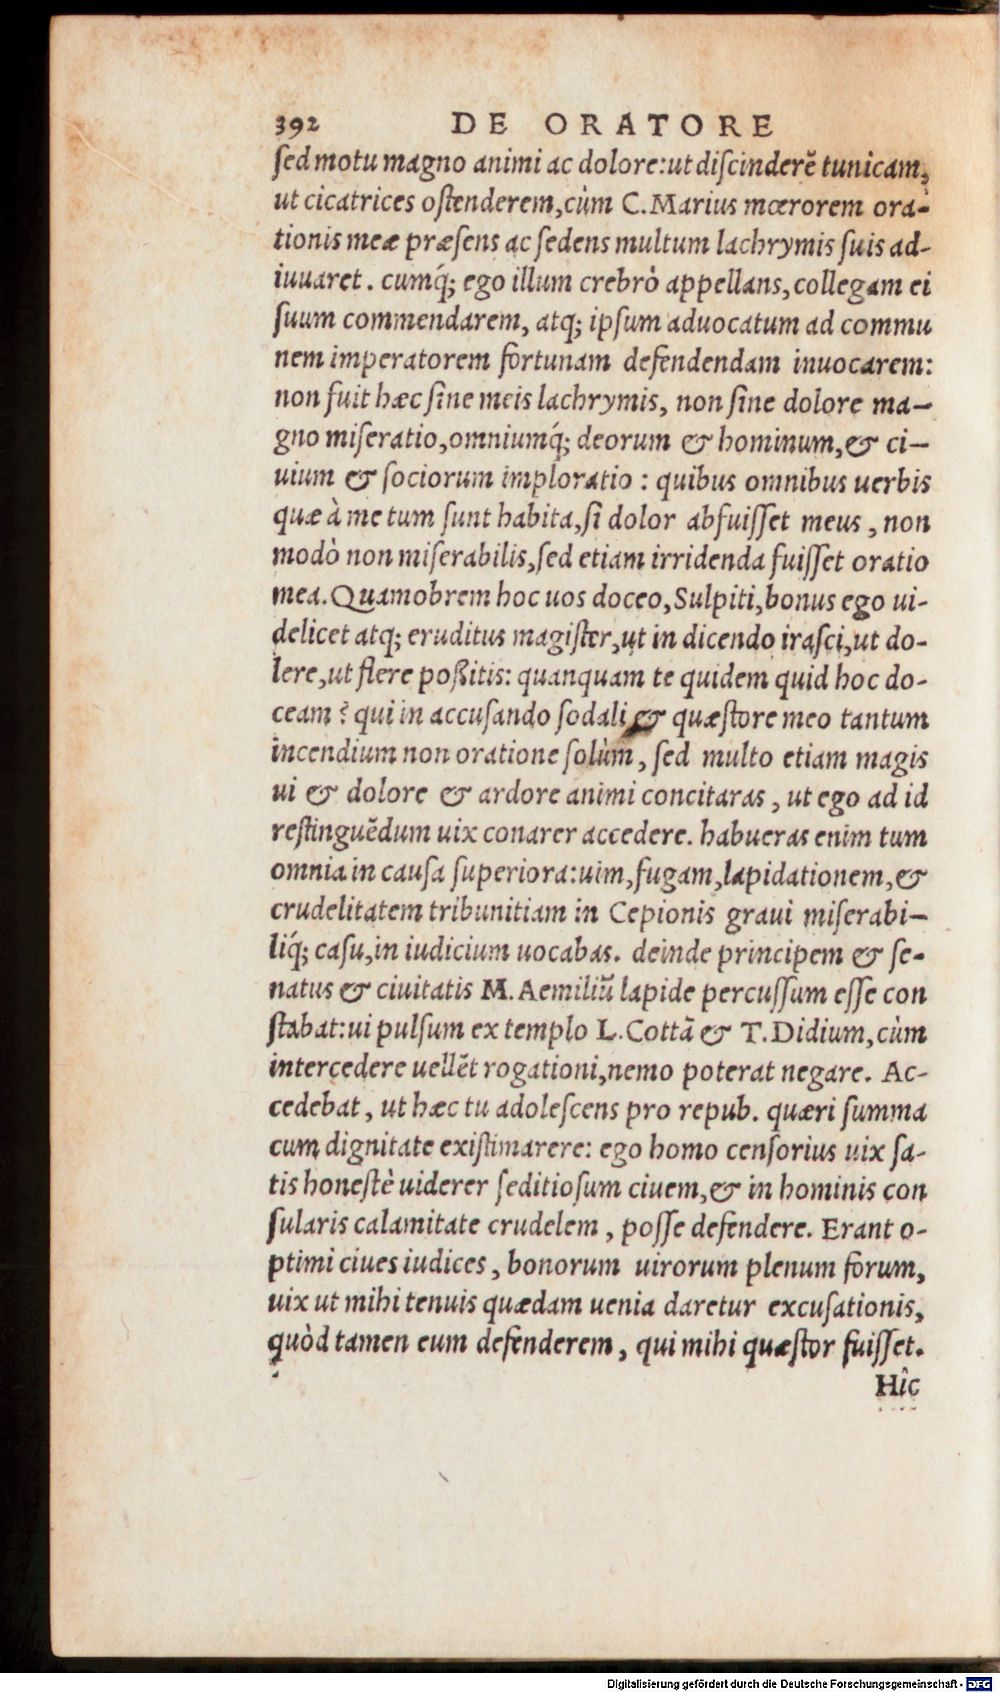 392 DE ORATORE
ſed motu magno animi ac dolore:ut diſcinderẽ tunicam,
ut cicatrices oſtenderem,cùm C.Marius mœrorem ora-
tionis meæ præſens ac ſedens multum lachrymis ſuis ad-
iuuaret. cumq́; ego illum crebrò appellans,collegam ei
ſuum commendarem, atq; ipſum aduocatum ad commu
nem imperatorem fortunam defendendam inuocarem:
non fuit hæc ſine meis lachrymis, non ſine dolore ma-
gno miſeratio,omniumq́; deorum & hominum,& ci-
uium & ſociorum imploratio : quibus omnibus uerbis
quæ à me tum ſunt habita,ſi dolor abfuiſſet meus , non
modò non miſerabilis,ſed etiam irridenda fuiſſet oratio
mea.Quamobrem hoc uos doceo,Sulpiti,bonus ego ui-
delicet atq; eruditus magiſter,ut in dicendo iraſci,ut do-
lere,ut flere poßitis: quanquam te quidem quid hoc do-
ceam ? qui in accuſando ſodali & quæſtore meo tantum
incendium non oratione ſolùm , ſed multo etiam magis
ui & dolore & ardore animi concitaras , ut ego ad id
reſtinguẽdum uix conarer accedere. habueras enim tum
omnia in cauſa ſuperiora:uim,fugam,lapidationem,&
crudelitatem tribunitiam in Cepionis graui miſerabi-
liq́; caſu,in iudicium uocabas. deinde principem & ſe-
natus & ciuitatis M.Aemiliũ lapide percuſſum eſſe con
ſtabat:ui pulſum ex templo L.Cottã & T.Didium,cùm
intercedere uellẽt rogationi,nemo poterat negare. Ac-
cedebat , ut hæc tu adoleſcens pro repub. quæri ſumma
cum dignitate exiſtimarere: ego homo cenſorius uix ſa-
tis honeſtè uiderer ſeditioſum ciuem,& in hominis con
ſularis calamitate crudelem , poſſe defendere. Erant o-
ptimi ciues iudices , bonorum uirorum plenum forum,
uix ut mihi tenuis quædam uenia daretur excuſationis,
quòd tamen eum defenderem , qui mihi quæſtor fuiſſet.
Hîc
Digitalisierung gefördert durch die Deutsche Forschungsgemeinschaft - DFG